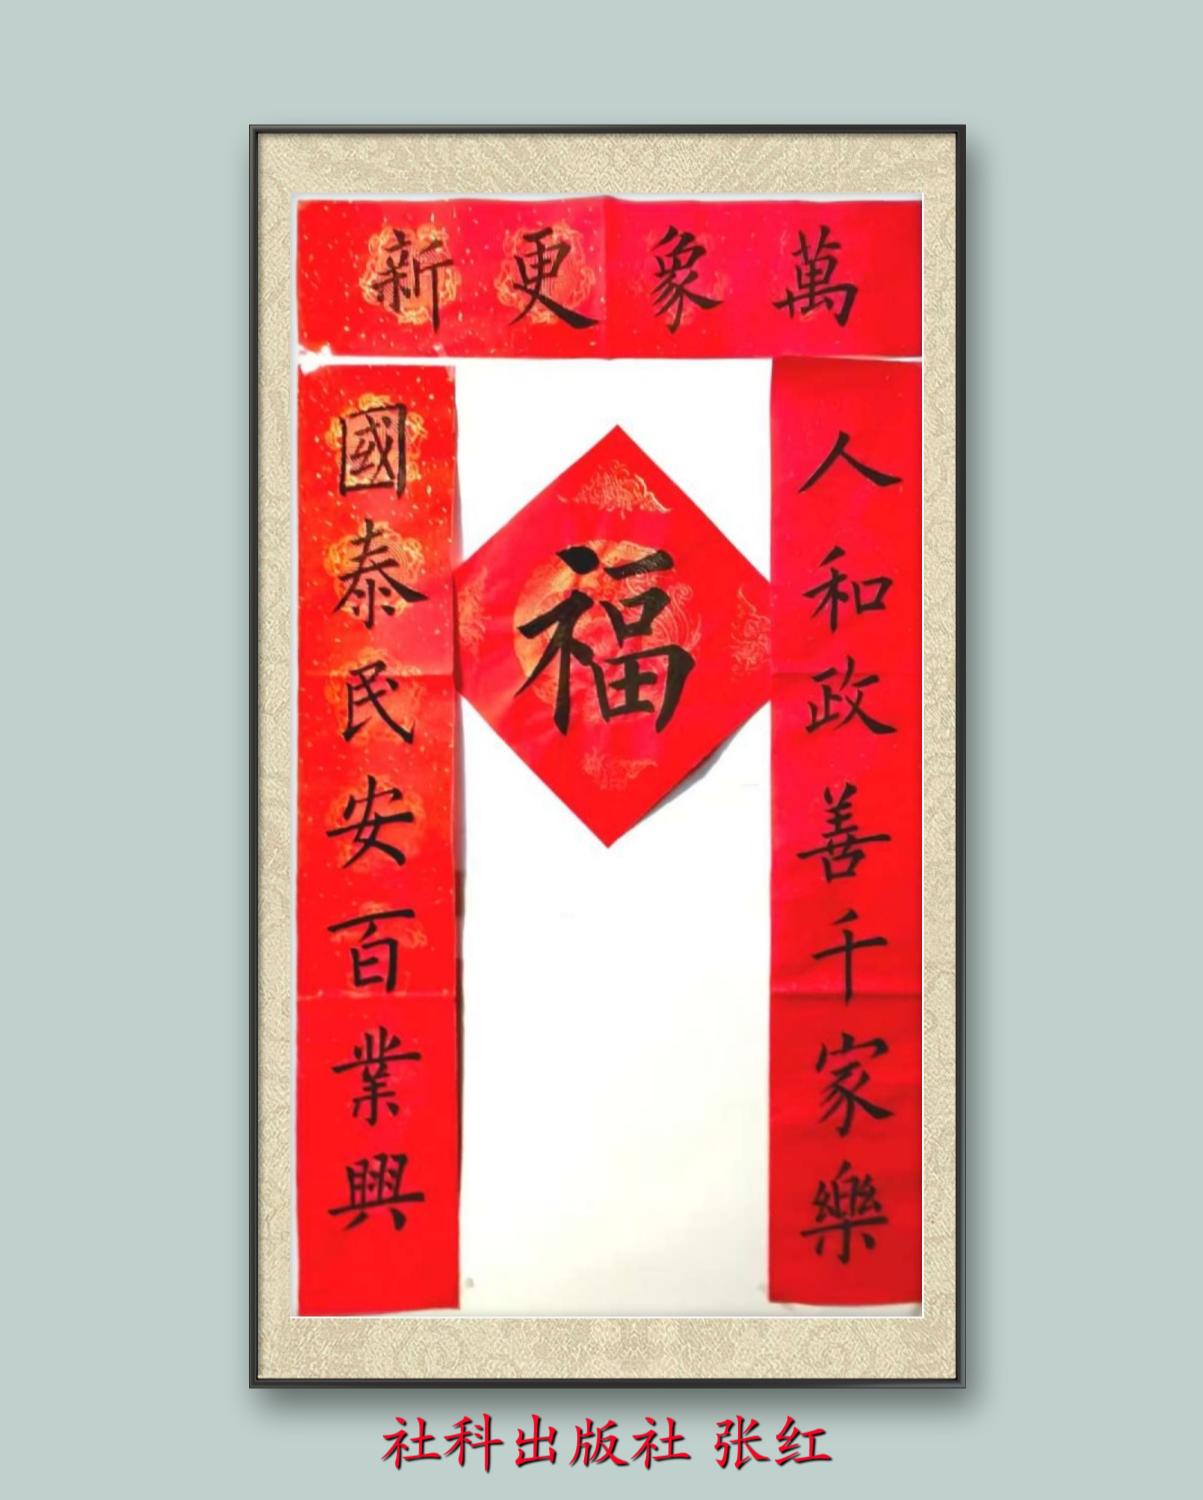 萬象更新
人和政善千家樂
國泰民安百業興
福
社科出版社 张红